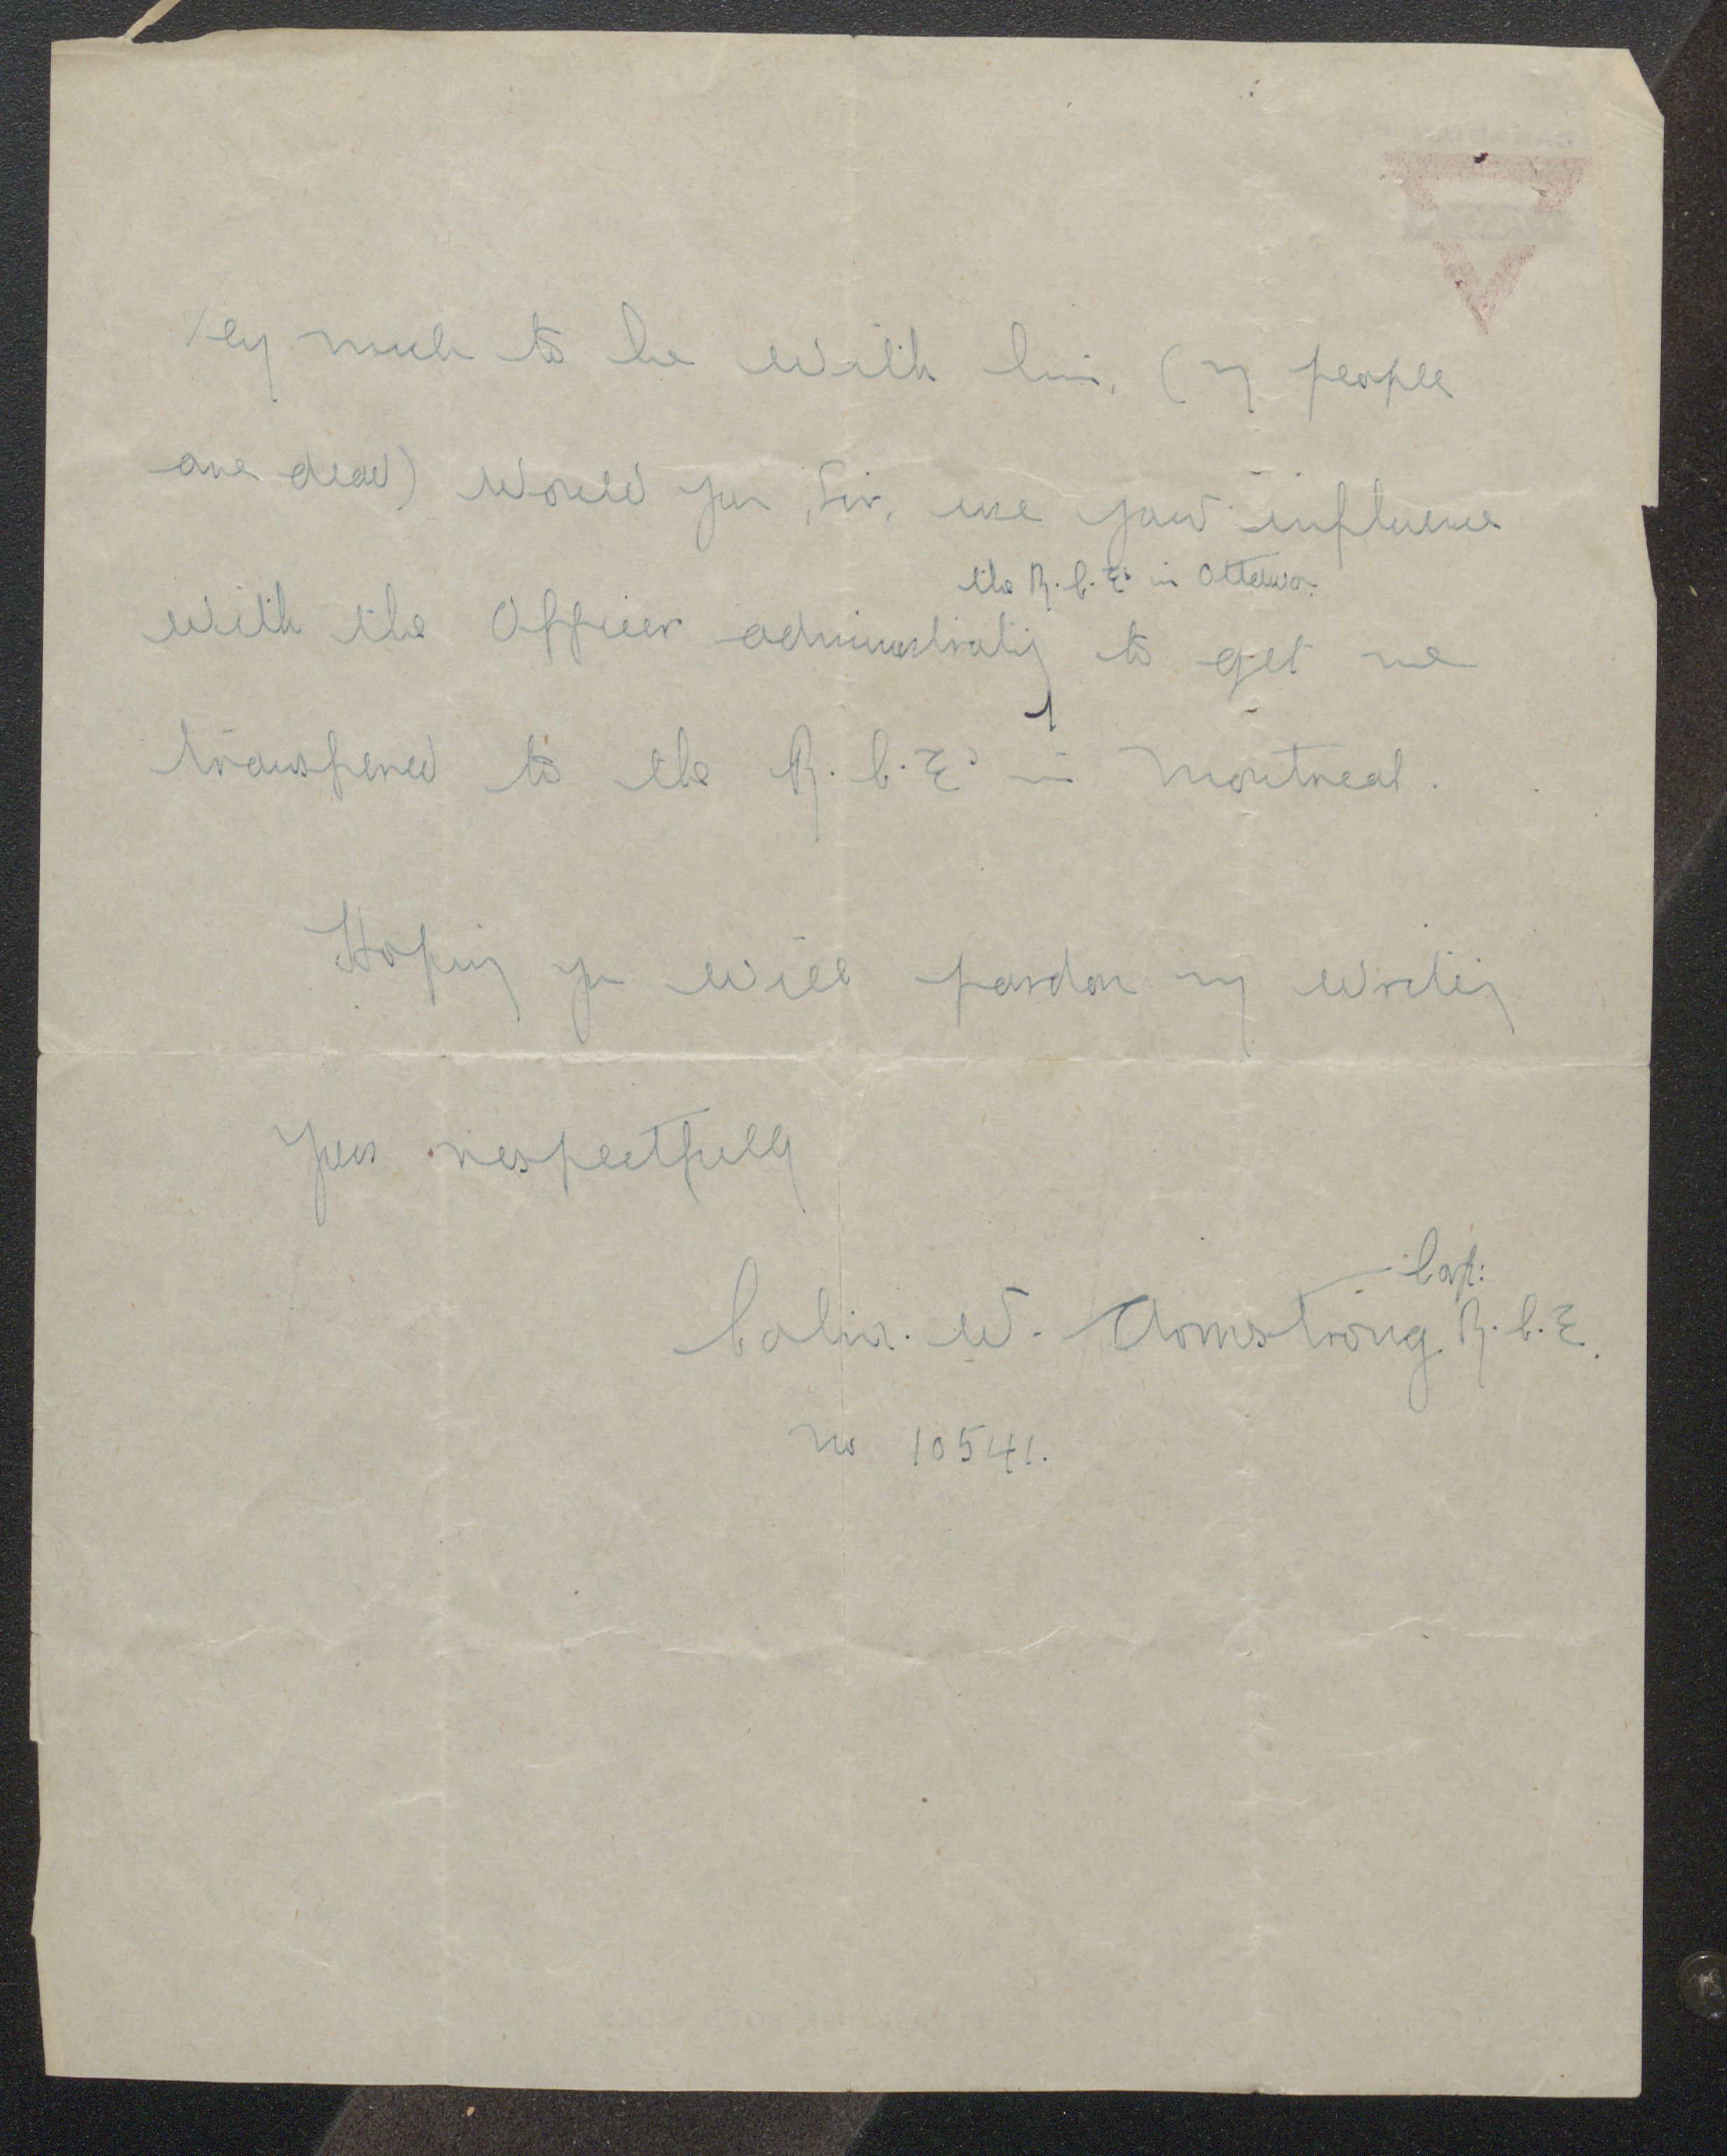 very much to be with him. (my people
are dead) Would you, Sir, use your influence
the R.C.E's in Ottawa.
with the Officer administrating to get me
transfered to the R.C.E's in Montreal.
Hoping you will pardon my writing
Yours respectfully
Corp:
Colin. W. Armstrong R.C.E.
No 10541.